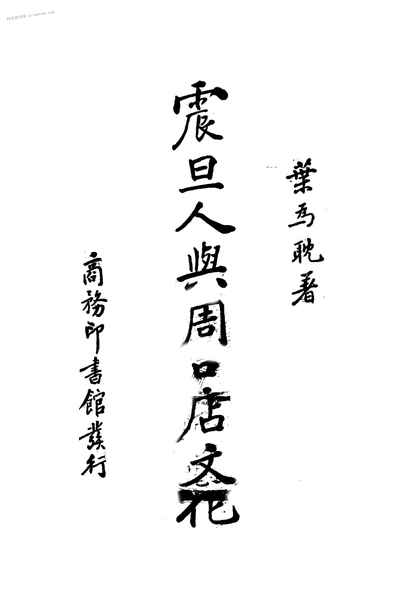 葉為耽著
震旦人與周口店文化
商務印書館發行